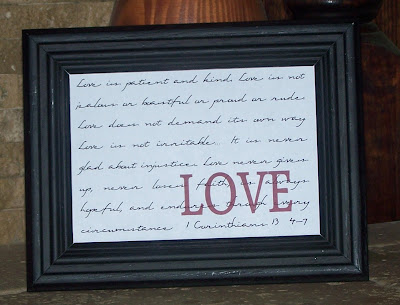 Love is patient and kind. Love is not
jealous or boastful or proud or rude.
Love does not demand its own way
Love is not irritable. It is never
glad about injustice. Love never gives
up, never loses faith, is always
hopeful, and endures through every
circumstance. 1 Corinthians 13 4-7
LOVE